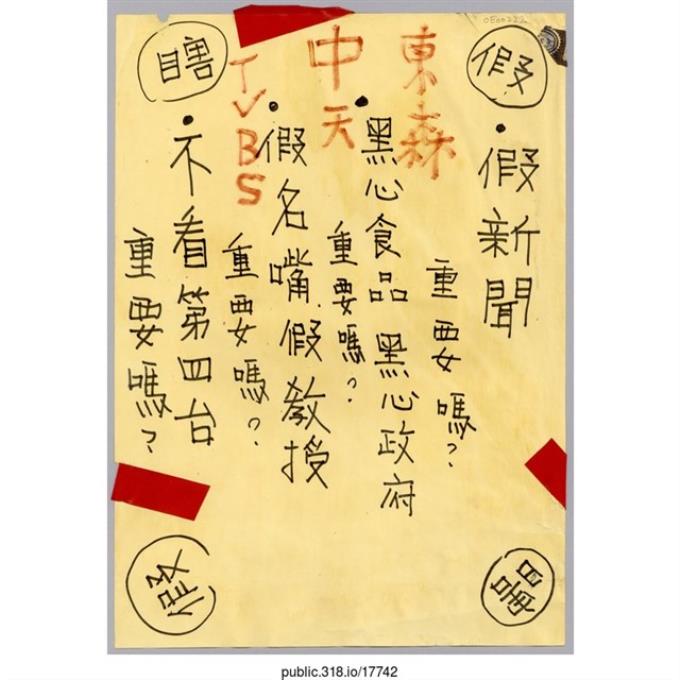 假
・假新聞
重要嗎？
東森
・黑心食品 黑心政府
重要嗎？
中天
・假名嘴假教授
重要嗎？
TVBS
・不看第四台
重要嗎？
瞎
瞎
假
public.318.io/17742